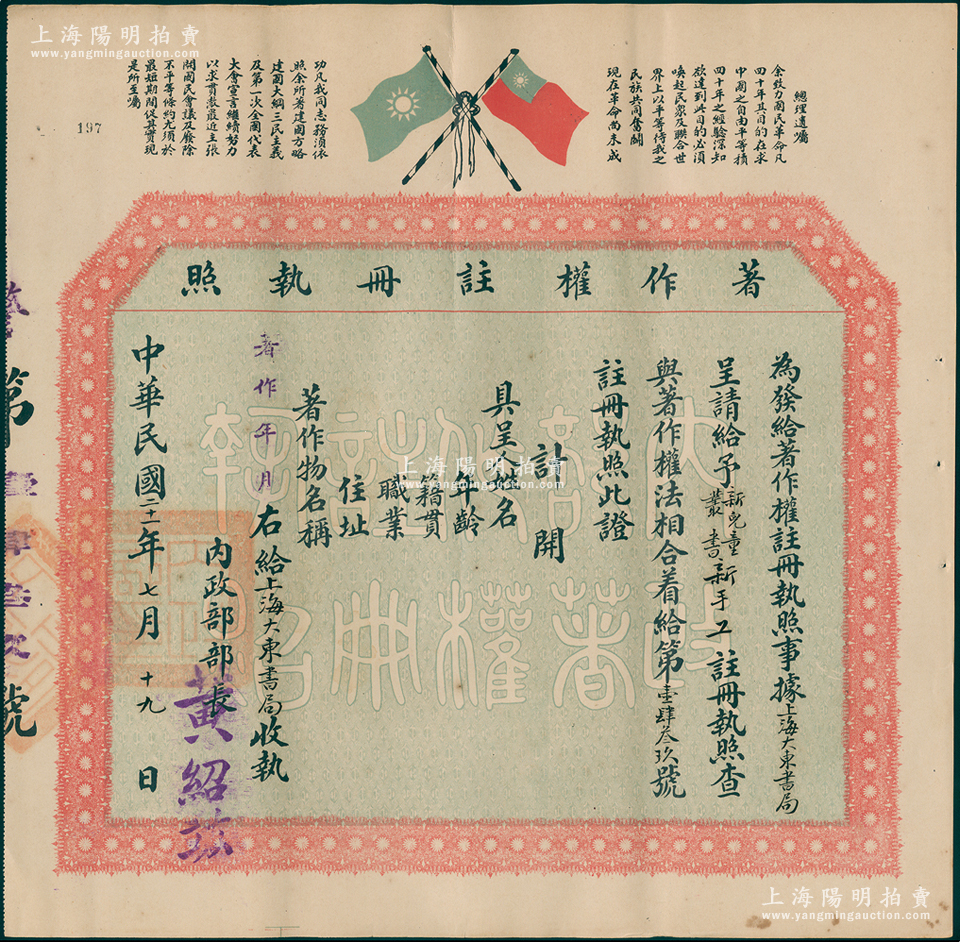 上海陽明拍賣
www.yangmingauction.com
總理遺囑
余致力國民革命凡
四十年其目的在求
中國之自由平等積
四十年之經驗深知
欲達到此目的必須
喚起民眾及聯合世
界上以平等待我之
民族共同奮鬭
現在革命尚未成
功凡我同志務須依
照余所著建國方略
建國大綱三民主義
及第一次全國代表
大會宣言繼續努力
以求貫澈最近主張
開國民會議及廢除
不平等條約尤須於
最短期間促其實現
是所至囑
197
著作權註冊執照
為發給著作權註冊執照事據上海大東書局
呈請給予新兒童叢書新手工註冊執照查
與著作權法相合着給第壹肆叁玖號
註冊執照此證
計開
具呈人姓名
年齡
籍貫
職業
住址
著作物名稱
著作年月
右給上海大東書局收執
內政部部長
黃紹竑
中華民國二十一年七月十九日
第壹肆叁玖號
上海陽明拍賣
www.yangmingauction.com
上海陽明拍賣
www.yangmingauction.com